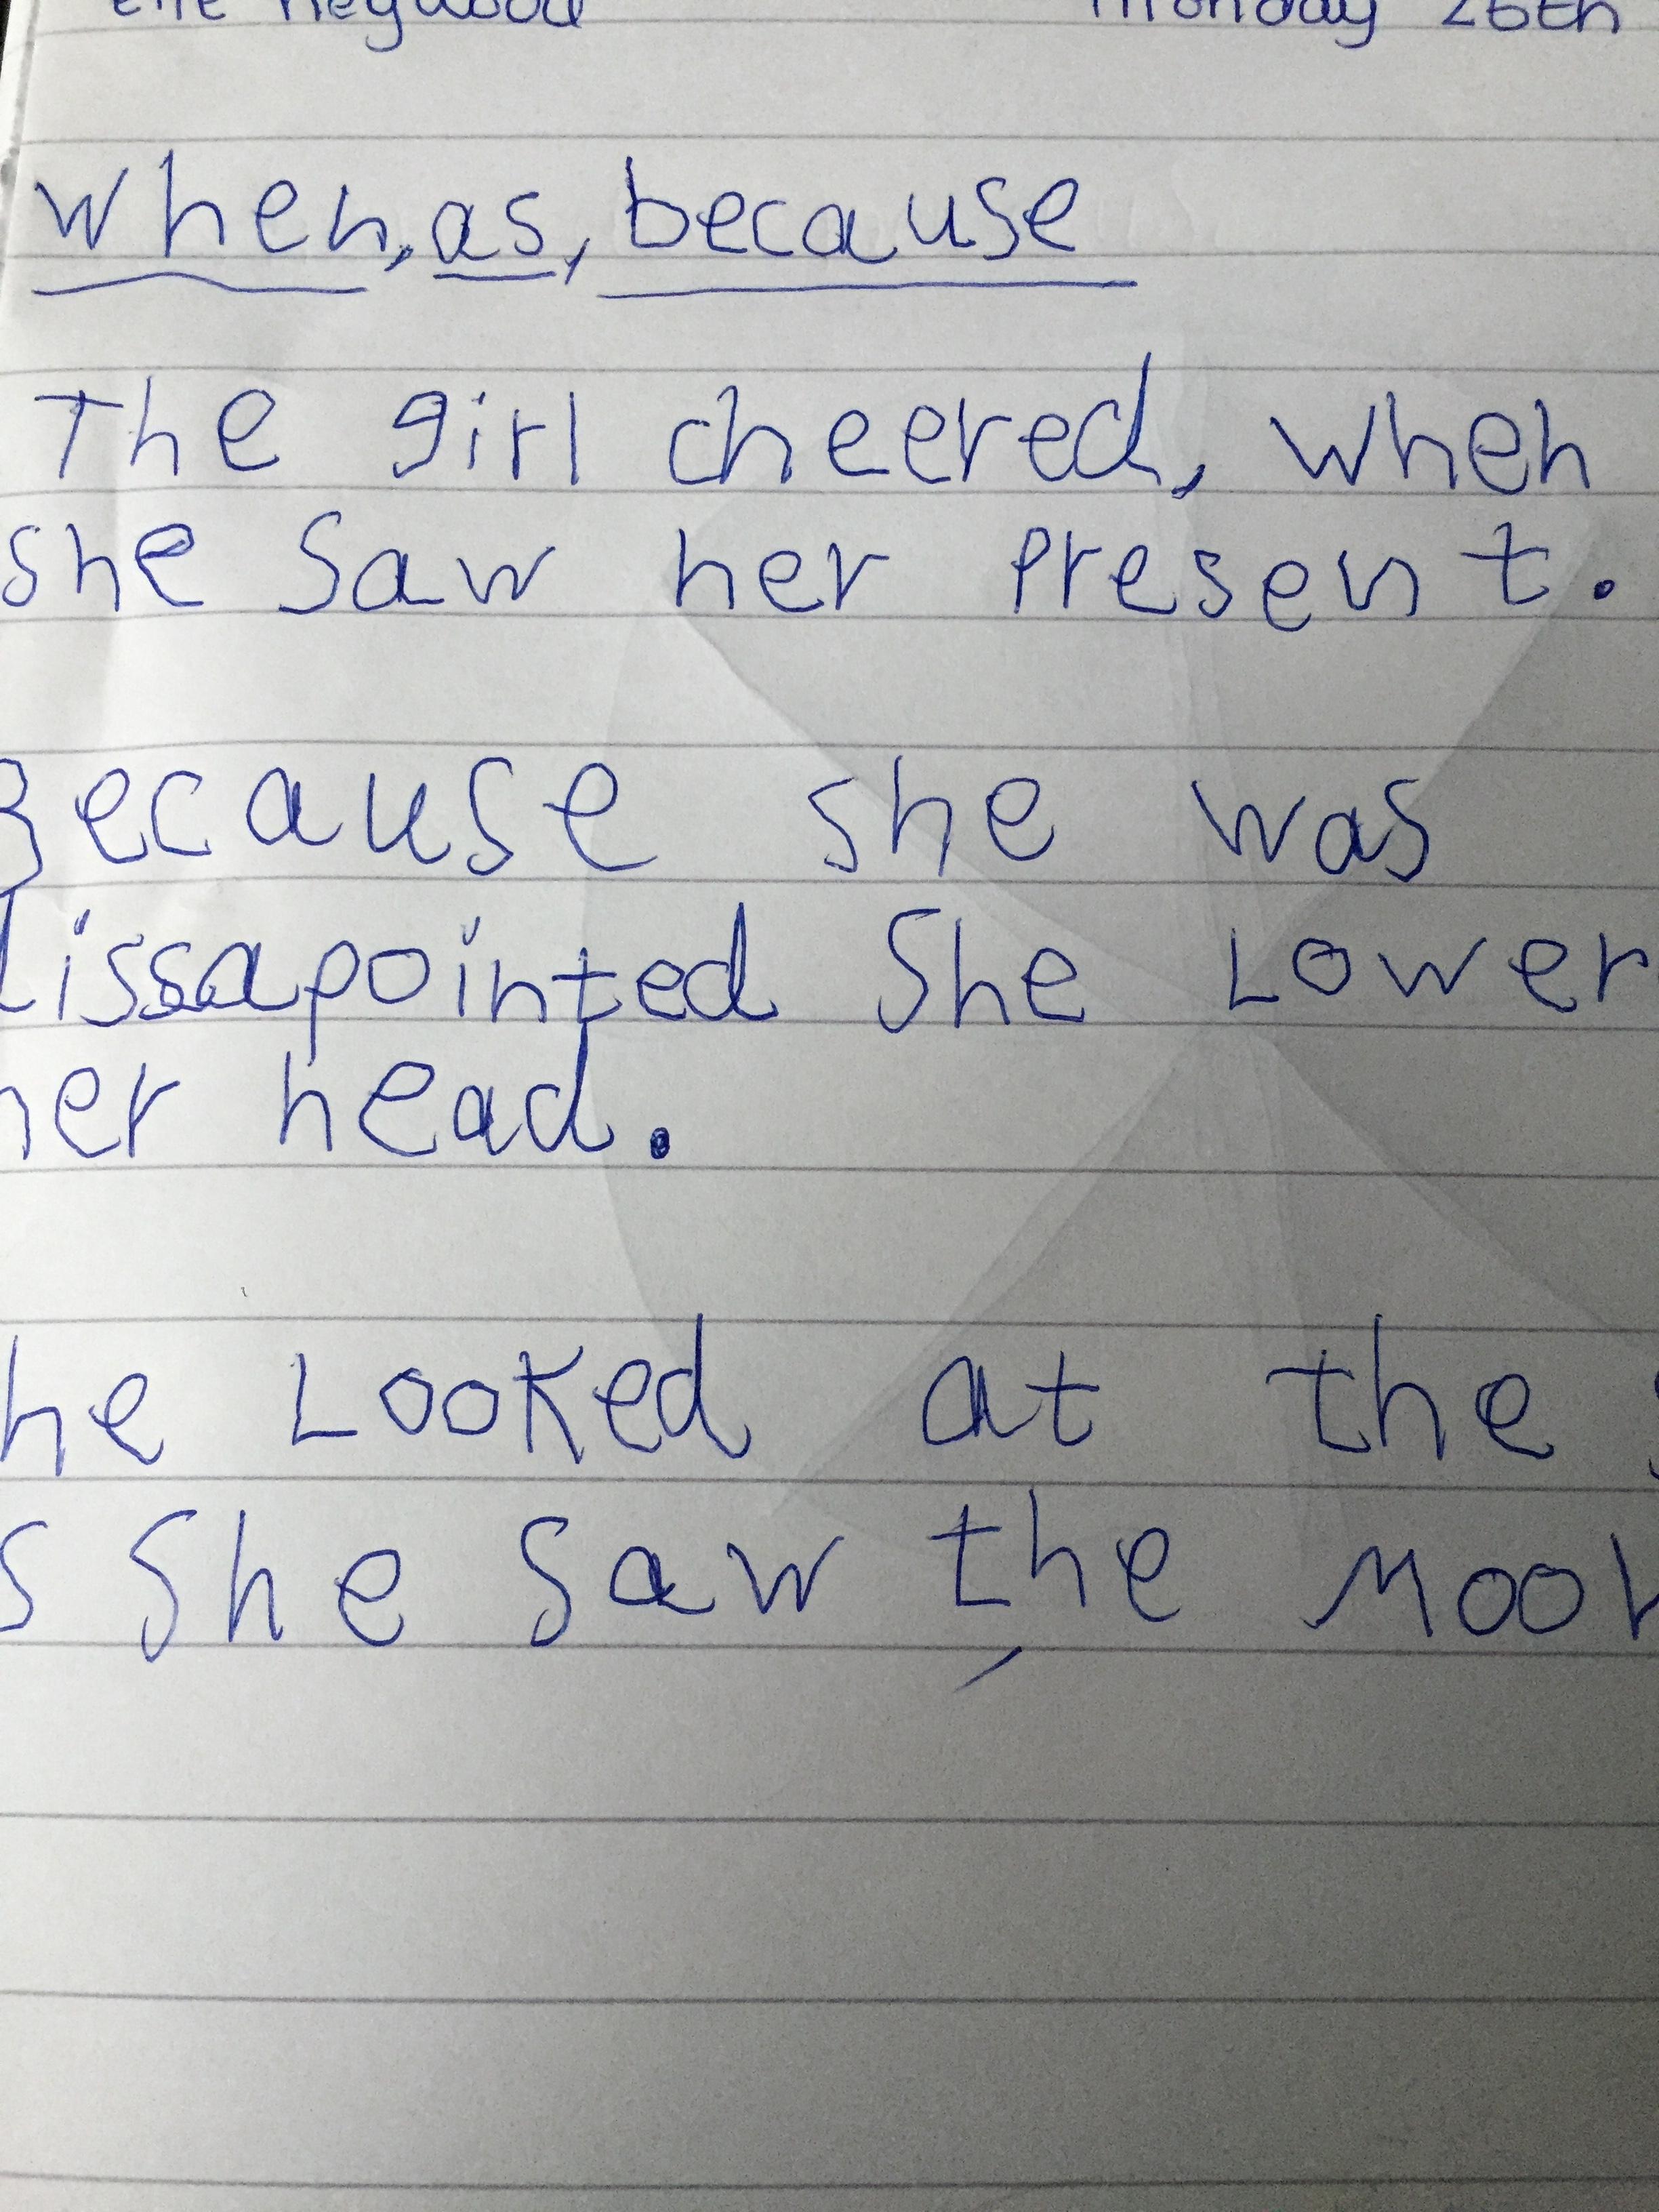 Monday 26th
when, as, because
The girl cheered, when
she saw her present.
Because she was
dissapointed She Lower
her head.
he Looked at the
s She saw the Moon